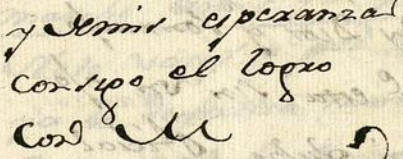 y demis esperanza
consigo el logro
Con M